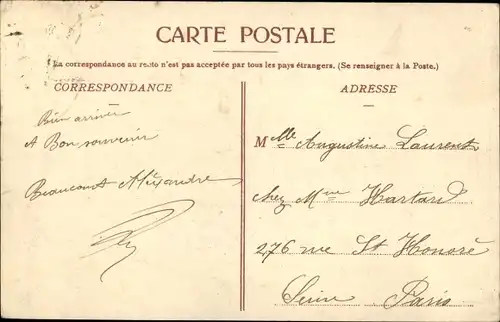 CARTE POSTALE
La correspondance au recto n'est pas acceptée par tous les pays étrangers. (Se renseigner à la Poste.)
CORRESPONDANCE
Bien arriver
A Bon souvenir
Beaucourt Aléxandre
ADRESSE
Melle Augustine Laurent
chez Mme Hartard
276 rue St Honoré
Seine Paris